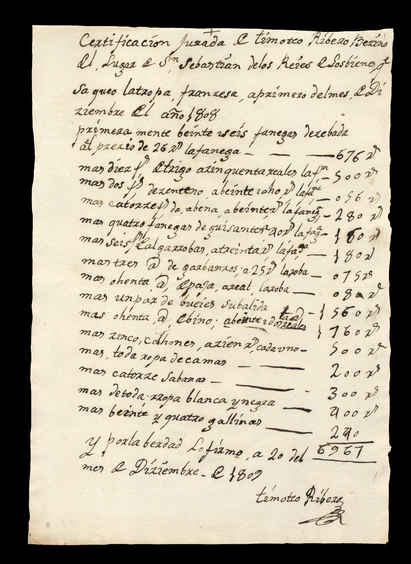 Certificacion Jurada de timoteo Ribero Becino
del Lugar de Sn Sebastian de los Reies de lo
saqueo la tropa, franzesa, a primero del mes, de Di
ziembre del año 1808
primera mente beinte i seis fanegas de zebada
al prezio de 26 rs la fanega — 676 rs
mas diez fs de trigo a zinquenta reales la fa — 500 rs
mas dos fs de zenteno, a beinte i ocho rs la fa — 056 rs
mas catorze fs de, abena, a beinte rs la fanega — 280 rs
mas quatro fanegas de guisantes a 40 rs la fanga — 160 rs
mas seis fs de algarrobas, a treinta rs la fa — 180 rs
mas tres @ de garbanzos, a 25 rs la roba — 075 rs
mas ohenta, @, de paja, a real, la roba — 080 rs
mas un par de bueies su balida — 1560 rs
mas ohenta, @, de bino, a beinte i dos reales — 1760 rs
mas zinco, colhones, a zien rs cada uno — 500 rs
mas, toda ropa de camas — 200 rs
mas catorze sabanas — 300 rs
mas de toda rropa blanca y negra — 400 rs
mas beinte y quatro gallinas — 240
Y por la berdad Lo firmo, a 20 del 6967
mes de Diziembre - de 1809
timoteo Ribero